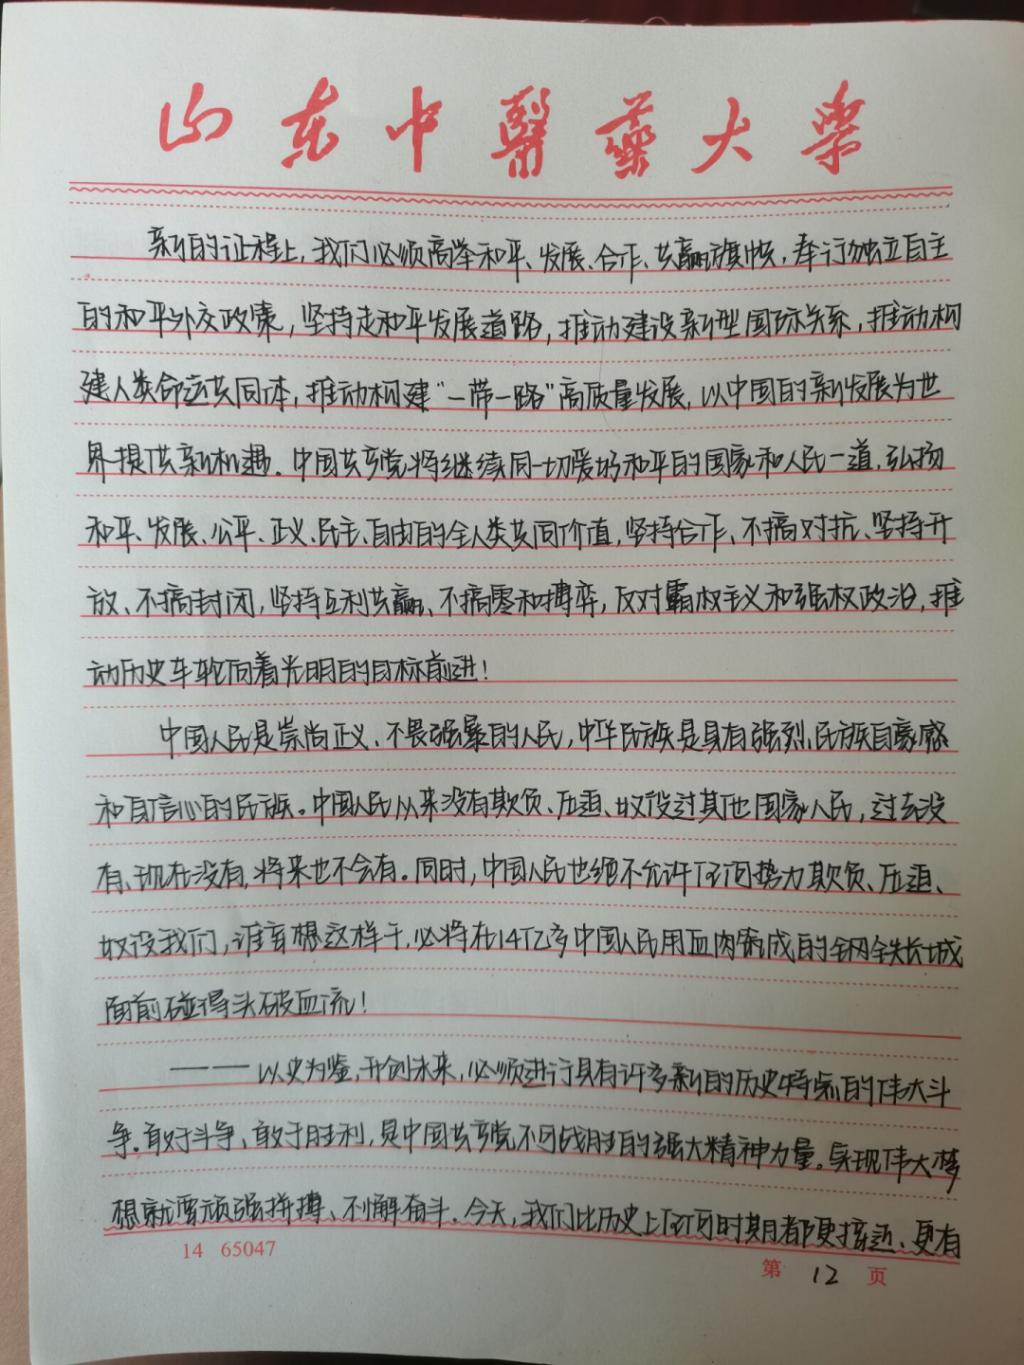 山东中醫藥大学
新的征程上，我们必须高举和平、发展、合作、共赢旗帜，奉行独立自主
的和平外交政策，坚持走和平发展道路，推动建设新型国际关系，推动构
建人类命运共同体，推动构建“一带一路”高质量发展，以中国的新发展为世
界提供新机遇。中国共产党将继续同一切爱好和平的国家和人民一道，弘扬
和平、发展、公平、正义、民主、自由的全人类共同价值，坚持合作、不搞对抗、坚持开
放、不搞封闭，坚持互利共赢、不搞零和博弈，反对霸权主义和强权政治，推
动历史车轮向着光明的目标前进！
中国人民是崇尚正义、不畏强暴的人民，中华民族是具有强烈民族自豪感
和自信心的民族。中国人民从来没有欺负、压迫、奴役过其他国家人民，过去没
有、现在没有，将来也不会有。同时，中国人民也绝不允许任何势力欺负、压迫、
奴役我们，谁妄想这样干，必将在14亿多中国人民用血肉筑成的钢铁长城
面前碰得头破血流！
——以史为鉴，开创未来，必须进行具有许多新的历史特点的伟大斗
争。敢于斗争、敢于胜利，是中国共产党不可战胜的强大精神力量。实现伟大梦
想就要顽强拼搏、不懈奋斗。今天，我们比历史上任何时期都更接近、更有
14 65047
第 12 页